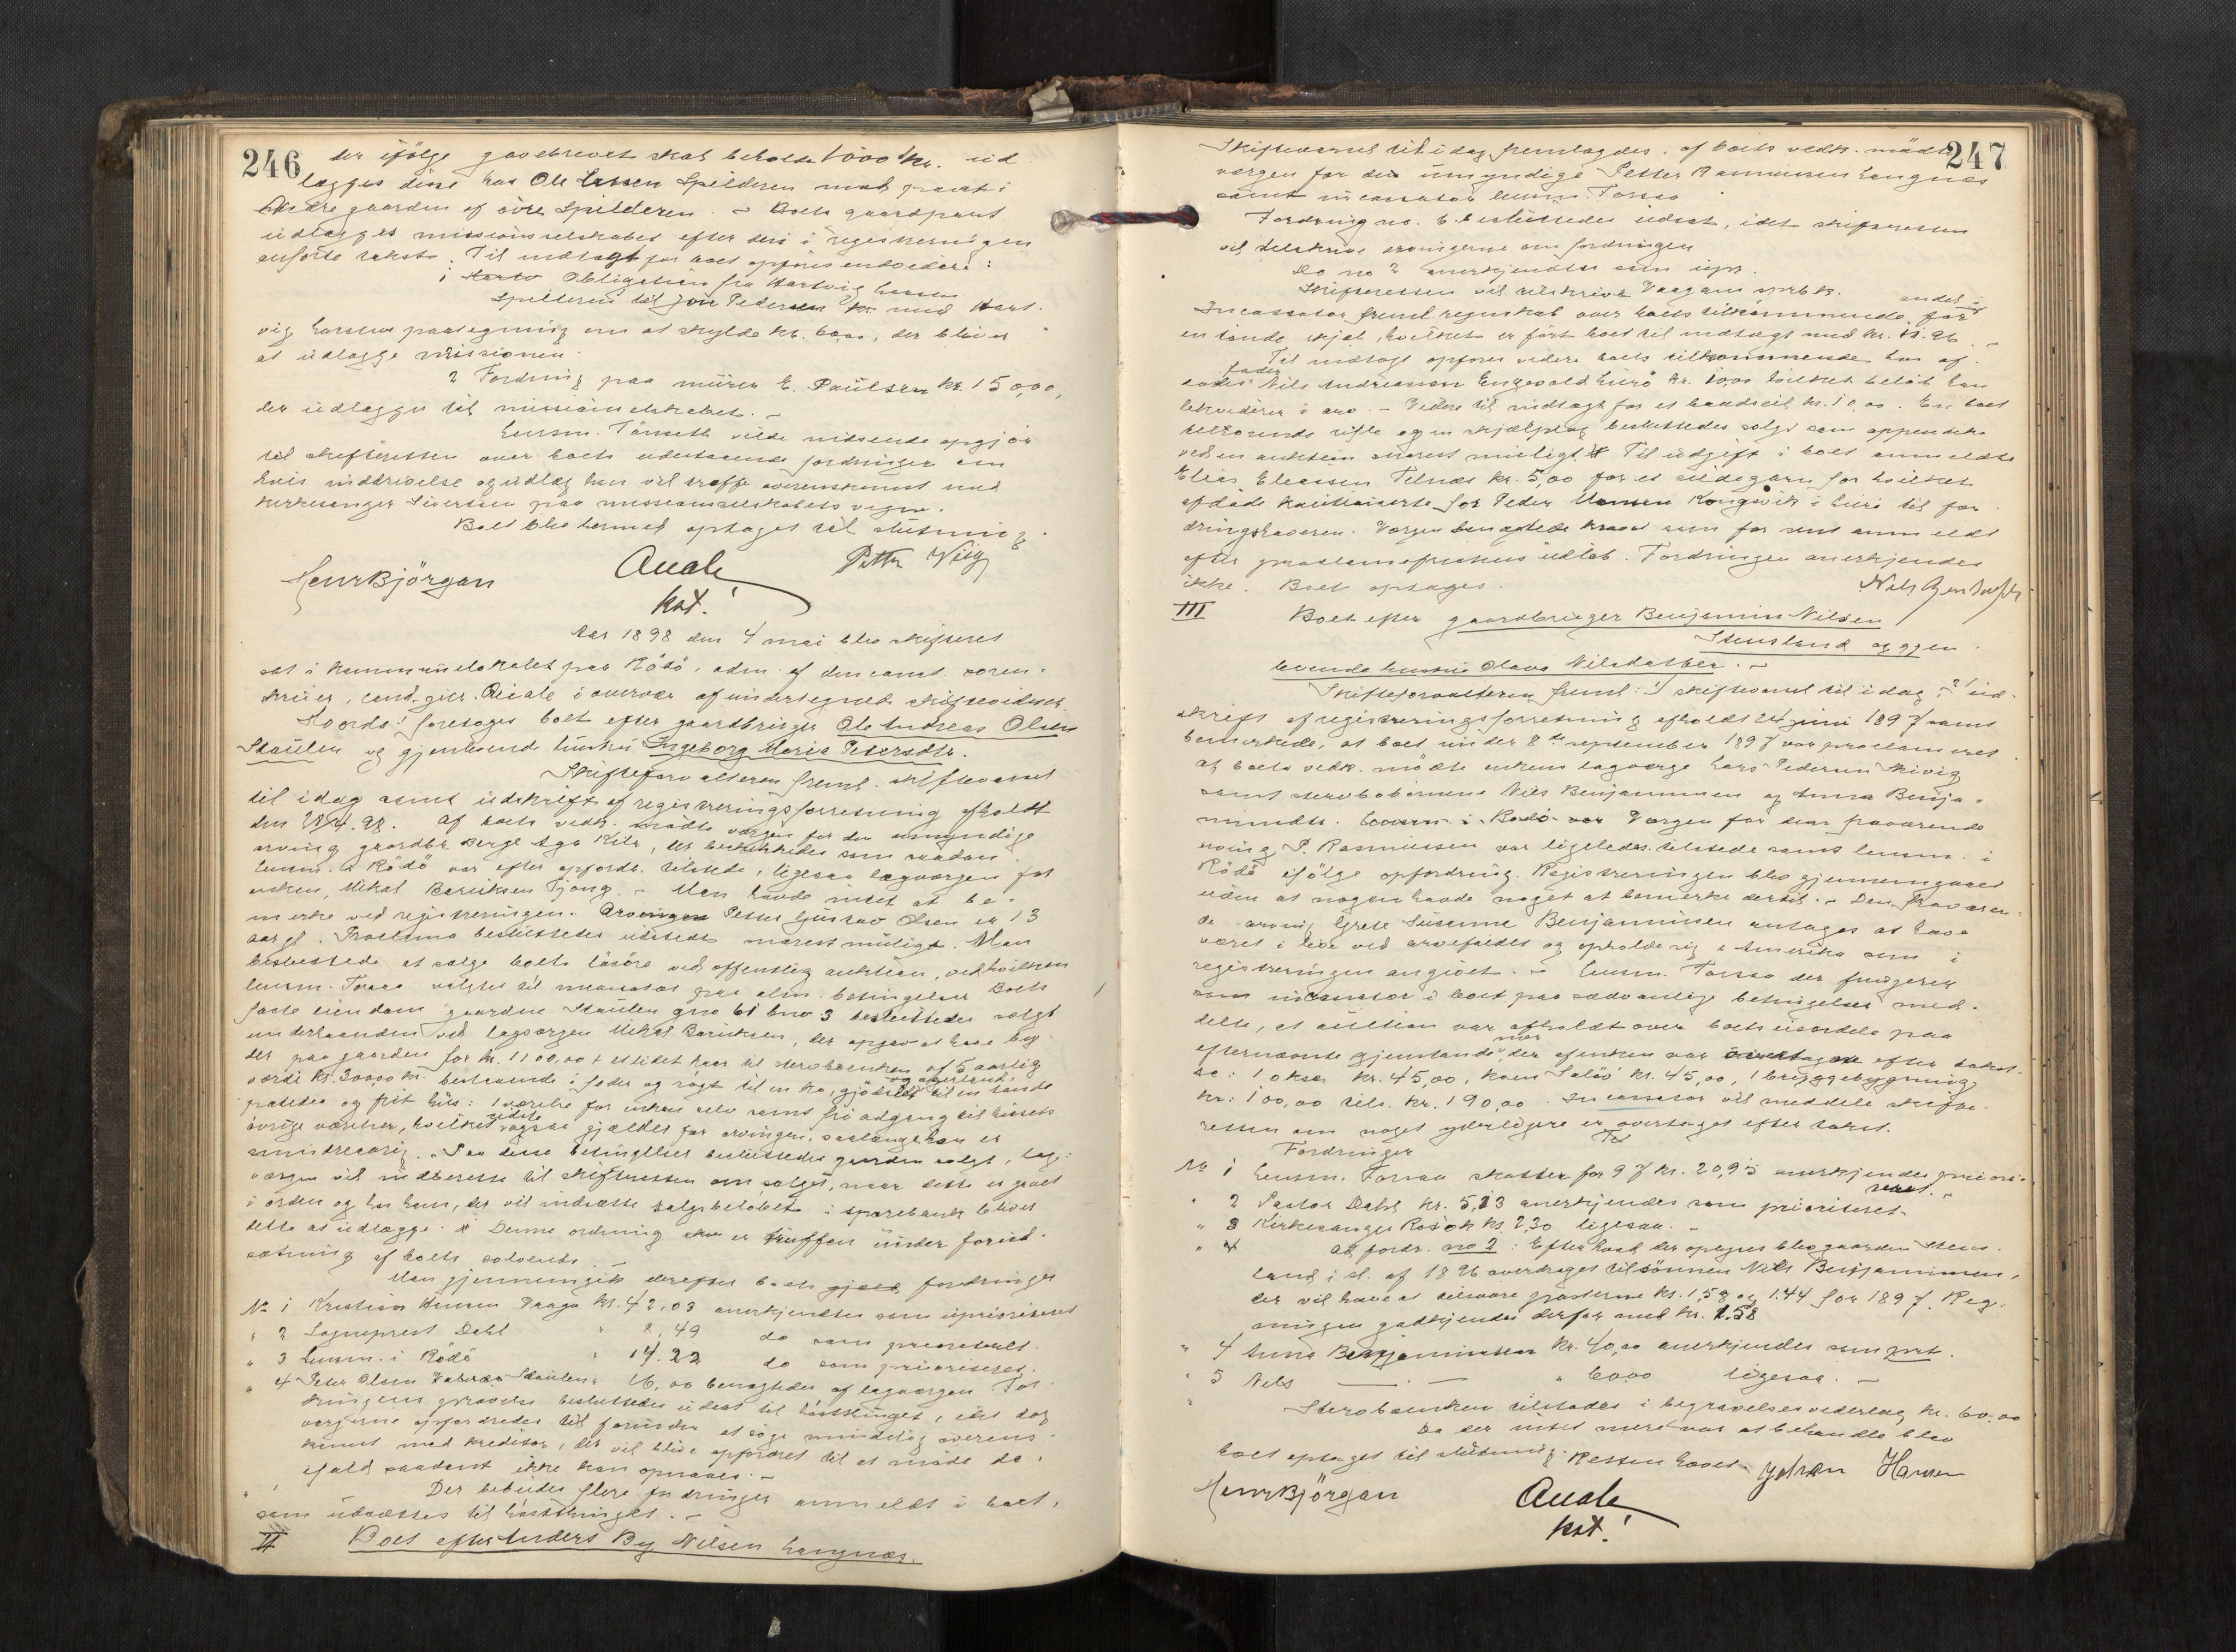 246
der ifölge gavebrevet skal beholde 1000 kr. ud
lægges disse hos Ole Larsen Spilderen mod pant i
gaarden af övre Spilderen. - Boets gaardpant
udlægges missionsselskabet efter den i registreringen
anförte takst. Til indtægt for boet opföres endvidere:
1 Obligation fra Hartvig Larsen
Spilderen til Jon Pedersen kr. med Hart-
vig Larsens paategning om at skylde kr. 60,00, der bliver
at udlægge missionen.
2 Fordring paa mürer E. Paülsen kr. 15,00,
der udlægges til missionsselskabet. -
Lensm. Tönseth vilde indsende opgjör
til skifteretten over boets udestaaende fordringer om
hvis inddrivelse og udlæg han vil træffe overenskomst med
kirkesanger Sivertsen paa missionsselskabets vegne.
Boet blev hermed optaget til slutning.
Henr Bjørgan Auale Petter Visg
kst!
Aar 1898 den 4 mai blev skifteret
sat i kommunelokalet paa Rödö, adm. af den const. soren-
skriver, cand. jur. Auale i overvær af undertegnede skiftevidner.
Hvorda: foretoges boet efter gaardbruger Ole Andreas Olsen
Staulen og gjenlevende hustru Ingeborg Maria Petersdtr.
Skifteforvalteren freml. skiftevarsel
til idag samt udskrift af registreringsforretning afholdt
den 28/4.98. Af boets vedk. mödte værgen for den umyndige
arving gaardbr. Berge Aga Kila, der beskikkedes som saadan.
Lensm. i Rödö var efter opfordr. tilstede, ligesaa lagværgen for
enken, Mikal Baruksen Tjong. - Man havde intet at be-
mærke ved registreringen. Arvingen Petter Gustav Olsen er 13
aar gl. Proclama besluttedes udstedt snarest muligt. Man
besluttede at sælge boets lösöre ved offentlig auktion, ved hvilken
lensm. Torsaa valgtes til incassator paa alm. betingelser. Boets
faste eiendom gaarden Staulen gno 61 bno 3 besluttedes solgt
underhaanden ved lagværgen Mikal Baruksen, der opgav at have byd-
der paa gaarden for kr. 1100,00 + et lidet kaar til sterboenken af 5 aarlig
værdi kr. 300,00 kr. bestaaende i foder og rögt til en ko, gjödsel og agerland til en tönde
poteter og frit hus: 1 værelse for enken selv samt fri adgang til husets
övrige værelser, hvilket sidste ogsaa gjælder for arvingen, saalænge han er
mindreaarig. - Paa disse betingelser besluttedes gaarden solgt, lag-
værgen vil indberette til skifteretten om salget, naar dette er gaaet
i orden og hos ham, der vil indsætte salgsbelöbet i sparebank bliver
dette at udlægge. Denne ordning er truffen under forud-
sætning af boets solvents. -
Man gjennemgik derefter boets gjæld fordringer
No 1 Kristian Hansen Vaaga kr. 42,03 anerkjendtes som uprioriteret
" 2 Sogneprest Dahl " 8,49 do som prioriteret.
" 3 Lensm. i Rödö " 14.22 do som prioriteret.
" 4 Peter Olsen Staulen " 26,00 benægtedes af lagværgen. For-
dringens prövelse besluttedes udsat til hösttinget, idet dog
værgerne opfordredes til forinden at söge mindelig overens-
komst med kreditor, der vil blive opfordret til at möde der,
ifald saadant ikke kan opnaaes. -
Der bebudes flere fordringer anmeldt i boet,
som udsættes til hösttinget. -
II Boet efter Anders By Nilsen Langnæs.
247
Skiftevarsel til idag fremlagdes, af boets vedk. mödte
værgen for den umyndige Petter Rasmussen Langnæs
samt incassator lensm. Torsaa
Fordring no. 6. besluttedes udsat, idet skifteretten
vil tilskrive arvingerne om fordringen
Do no 2 anerkjendtes som upr.
Skifteretten vil tilskrive Vaagans sprbk.
Incassator freml. regnskab over boets tilkommende andel i far
en tiende skjel, hvilket er fört boet til indtægt med kr. 11.26. -
Til indtægt opföres videre boets tilkommende hos af-
dödes fader Nils Andreassen Engevold Lurö kr. 10,00 hvilket belöb han
likviderer i arv. - Videre til indtægt for et baadseil kr. 10,00. En boet
tilhörende rifle og en skjælplog besluttedes solgt som appendiks
ved en auktion snarest muligt. Til udgift i boet anmeldte
Elias Eleassen Telnæs kr. 5,00 for et sildegarn for hvilket
afdöde kautionerte for Peder Hansen Kongsvik i Lurö til for-
dringshaveren. Værgen benægtede kravet som for sent anmeldt
efter proclamafristens udlöb. Fordringen anerkjendes
ikke. Boet optages.
III Boet efter gaardbruger Benjamin Nilsen
Stensland og gjen-
levende hustru Olava Nilsdatter. -
Skifteforvalteren freml: 1 skiftevarsel til idag 2 ud-
skrift af registreringsforretning afholdt 24 juni 1897 samt
bemærkede, at boet under 8de september 1897 var proclameret.
Af boets vedk. mödte enkens lagværge Lars Pedersen Skivig
samt sterbobörnene Nils Benjaminsen og Anna Benja-
minsdtr. Værgen for den fraværende
arving P. Rasmussen var ligeledes tilstede samt lensm. i
Rödö ifölge opfordring. Registreringen blev gjennemgaaet
uden at nogen havde noget at bemærke dertil. - Den fraværen-
de arving Grete Susanne Benjaminsen antages at have
været i live ved arvefaldet og opholde sig i Amerika som i
registreringen angivet. - Lensm. Torsaa der fungerer
som incassator i boet paa sædvanlige betingelser med-
delte, at auktion var afholdt over boets uværdele paa
efternævnte gjenstande nær, der af enken var overtagne efter takst
se: 1 okse kr. 45,00, koen Salsö kr. 45,00, 1 bryggebygning
kr: 100,00 tils. kr. 190,00. Incassator vil meddele skifte-
retten om noget yderligere er overtaget efter takst.
Fordringer
No 1 Lensm. Torsaa skatter for 97 kr. 20,95 anerkjendes priori-
teret. -
" 2 Pastor Dahl kr. 5,13 anerkjendes som prioriteret
" 3 Kirkesanger Rosok kr. 2,30 ligesaa. -
" 4 Ad fordr. no 2: Efter hvad der oplyses blev gaarden Stens-
land i sl. af 1896 overdraget til sönnen Nils Benjaminsen,
der vil have at tilsvare posterne kr. 1,58 og 1.44 for 1897. Reg-
ningen godkjendes derfor med kr. 1.58
" 4 Anna Benjaminsen kr. 40,00 anerkjendes som prt.
" 5 Nils — " — " 60,00 ligesaa. -
Sterboenken tilstodes i begravelsesvederlag kr. 60,00
Da der intet mere var at behandle blev
boet optaget til slutning. Retten hævet. Johan Hansen
Henr Bjørgan Auale
kst!